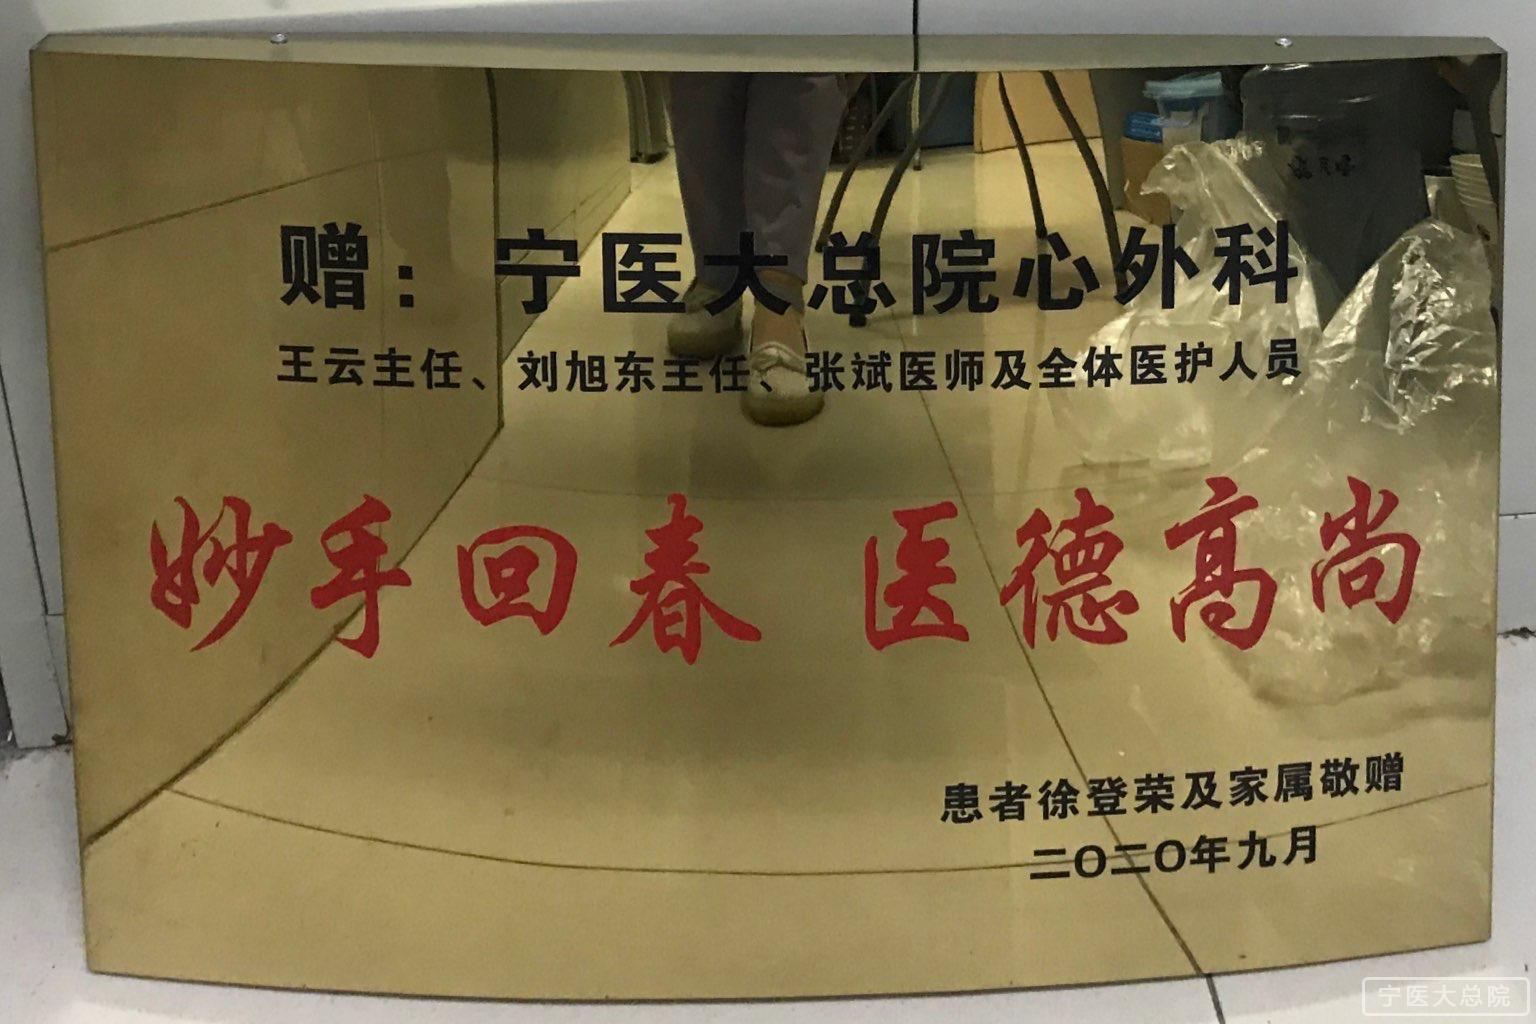 赠：宁医大总院心外科
王云主任、刘旭东主任、张斌医师及全体医护人员
妙手回春 医德高尚
患者徐登荣及家属敬赠
二〇二〇年九月
宁医大总院